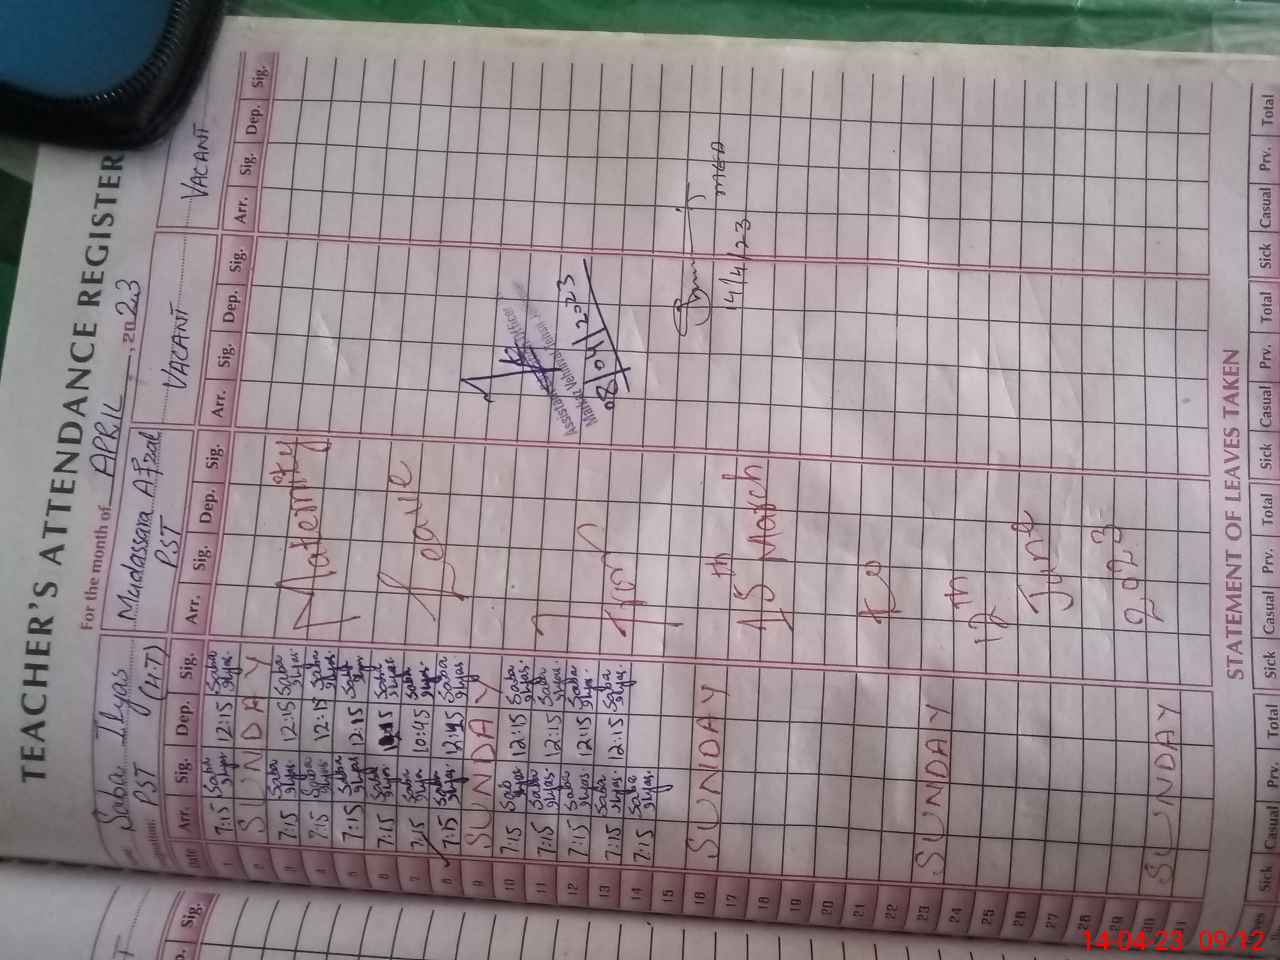 TEACHER'S ATTENDANCE REGISTER
For the month of APRIL, 2023
Saba Ilyas
Mudassara Afzal
VACANT
VACANT
PST (H.T)
PST
Date Arr. Sig. Dep. Sig. Arr. Sig. Dep. Sig. Arr. Sig. Dep. Sig. Arr. Sig. Dep. Sig.
1 7:15 Saba Ilyas 12:15 Saba Ilyas
2 SUNDAY
3 7:15 Saba Ilyas 12:15 Saba Ilyas
4 7:15 Saba Ilyas 12:15 Saba Ilyas
5 7:15 Saba Ilyas 12:15 Saba Ilyas
6 7:15 Saba Ilyas 12:15 Saba Ilyas
7 7:15 Saba Ilyas 10:45 Saba Ilyas
8 7:15 Saba Ilyas 12:15 Saba Ilyas
9 SUNDAY
10 7:15 Saba Ilyas 12:15 Saba Ilyas
11 7:15 Saba Ilyas 12:15 Saba Ilyas
12 7:15 Saba Ilyas 12:15 Saba Ilyas
13 7:15 Saba Ilyas 12:15 Saba Ilyas
14 7:15 Saba Ilyas
15
16 SUNDAY
17
18
19
20
21
22
23 SUNDAY
24
25
26
27
28
29
30 SUNDAY
31
Maternity
Leave
from
15th March
to
12th
June
2023
Assistant
Markaz
08/04/2023
MEA
14/4/23
STATEMENT OF LEAVES TAKEN
Sick Casual Prv. Total Sick Casual Prv. Total Sick Casual Prv. Total Sick Casual Prv. Total
Sig.
14-04-23 09:12